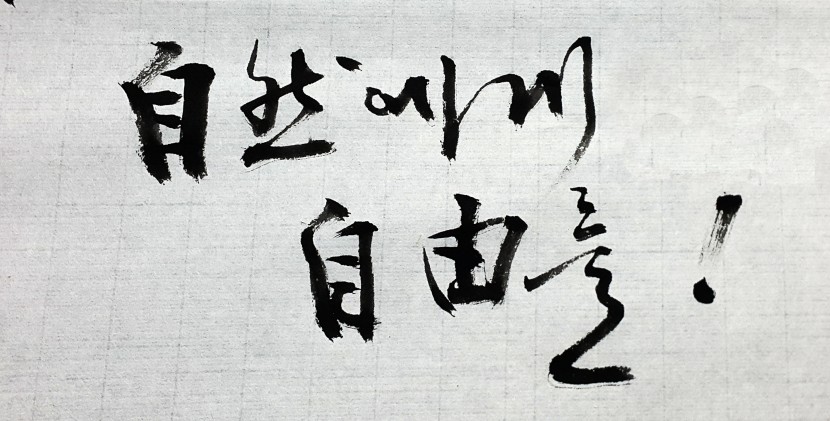 自然에게
自由를!